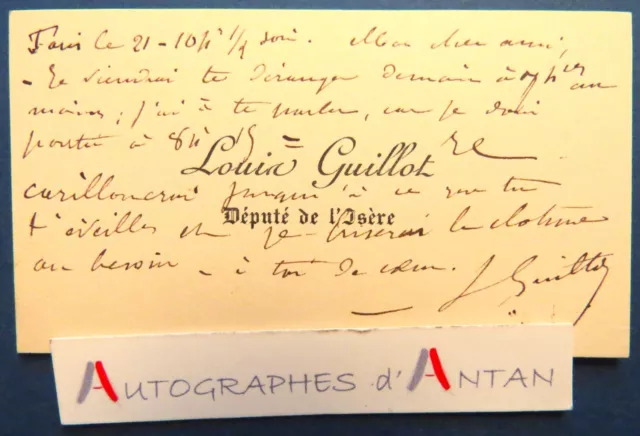 Paris le 21 - 10h 1/2 soir. Mon cher ami,
- Je viendrai te déranger demain à 7h
matin ; j'ai à te parler, car je dois
partir à 8h 15 =
Louis Guillot
carillonerai jusqu'à ce que tu
Député de l'Isère
t'éveilles et je briserai la
au besoin - à toi de cœur. L Guillot
AUTOGRAPHES d'ANTAN